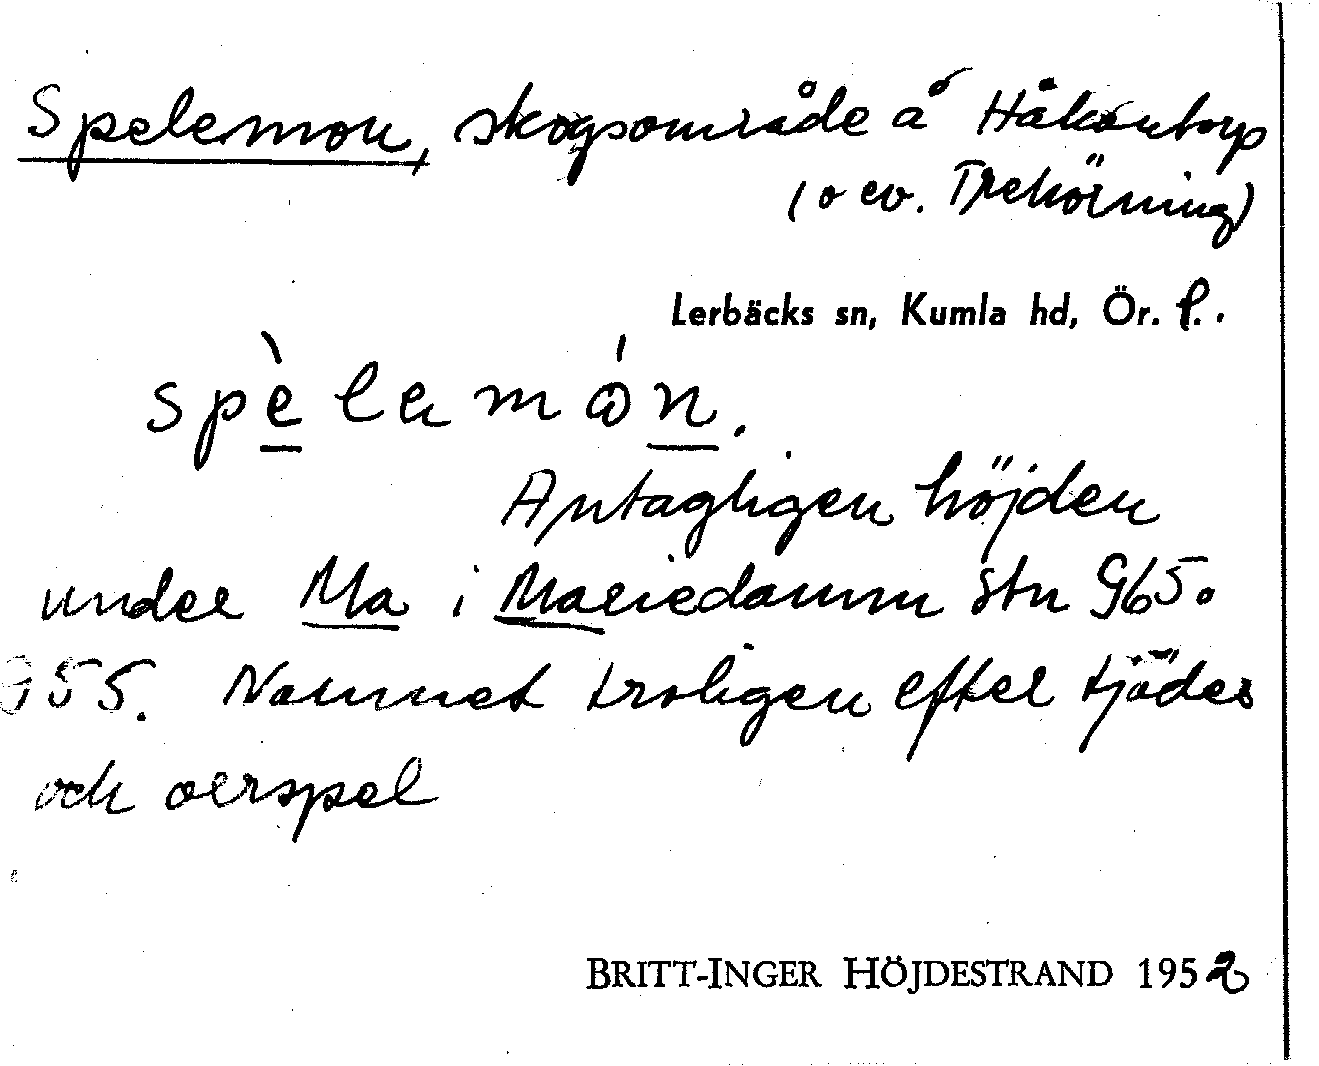 Spelemon, skogsområde å Håkantorp
(o ev. Trehörning)
Lerbäcks sn, Kumla hd, Ör. l.
spèlemón.
Antagligen höjden
under Ma i Mariedamm stn 965.
955. Namnet troligen efter tjäder
och orrspel
BRITT-INGER HÖJDESTRAND 1952